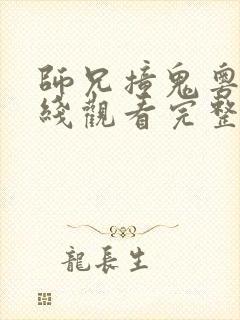 師兄撞鬼粵
綫觀看完整
龍長生